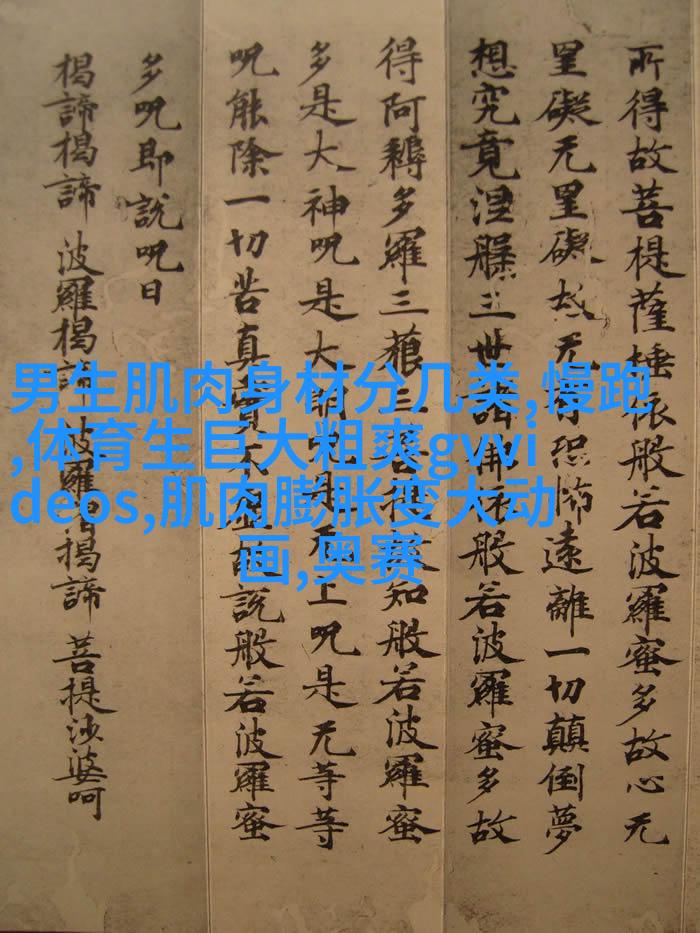 所得故菩提薩埵依般若波羅蜜多故心无
罣礙无罣礙故无有恐怖遠離一切顛倒夢
想究竟涅槃三世諸佛依般若波羅蜜多故
得阿耨多羅三藐三菩提故知般若波羅蜜
多是大神呪是大明呪是无上呪是无等等
呪能除一切苦真實不虛故說般若波羅蜜
多呪即說呪曰
揭諦揭諦 波羅揭諦 波羅僧揭諦 菩提沙婆呵
男生肌肉身材分几类,慢跑
,体育生巨大粗爽gvvi
deos,肌肉膨胀变大动
画,奥赛